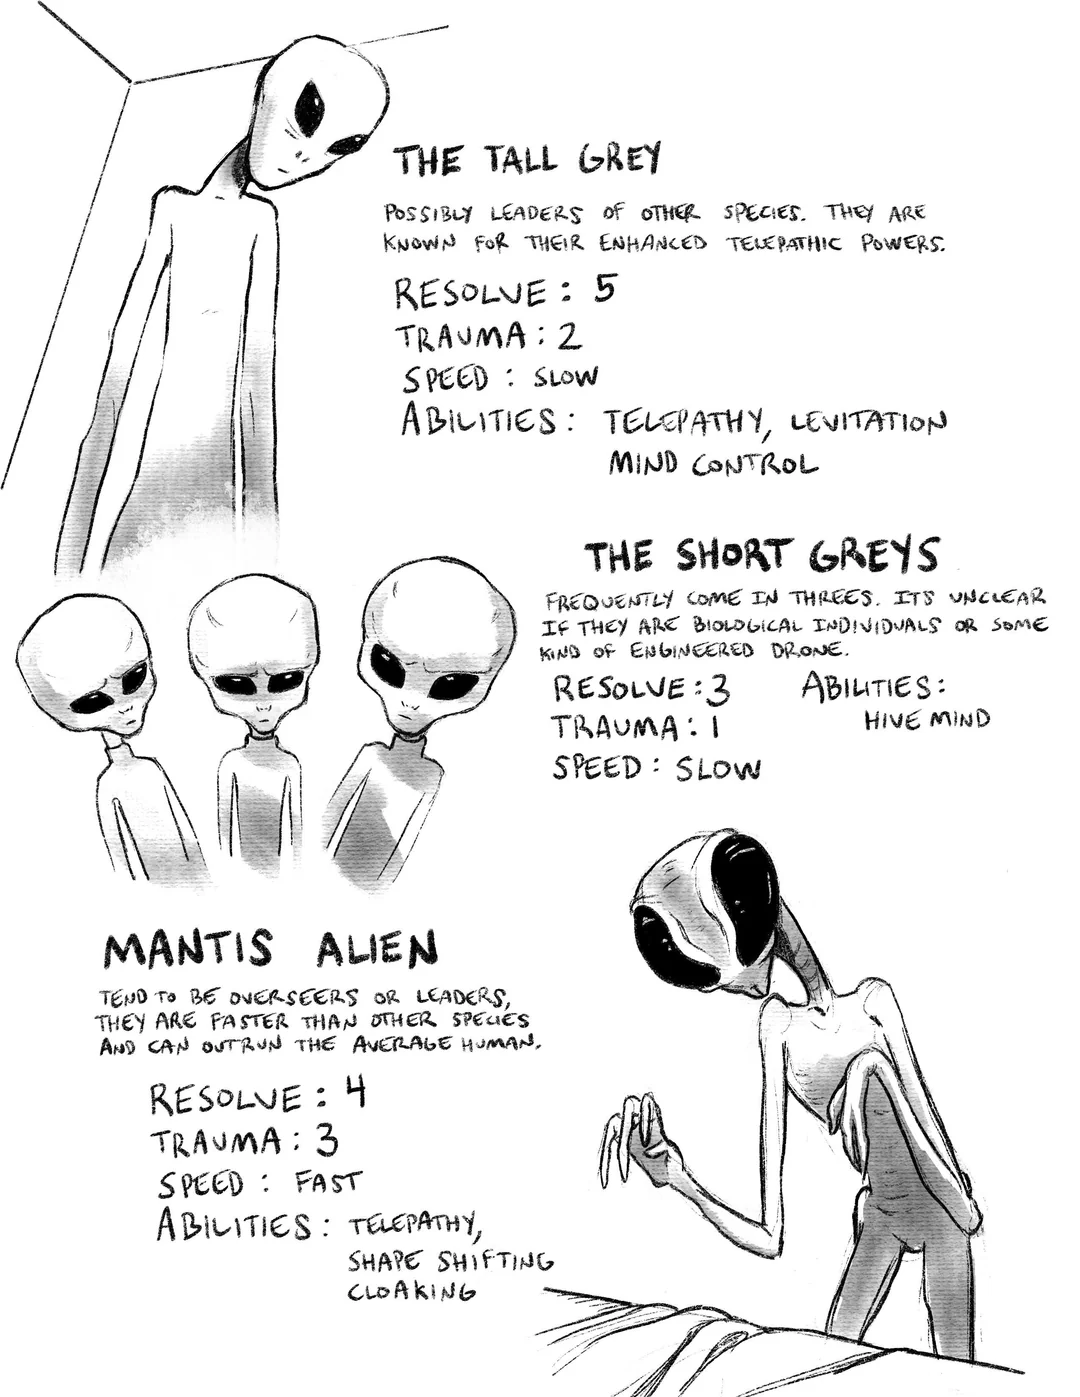 THE TALL GREY
POSSIBLY LEADERS OF OTHER SPECIES. THEY ARE
KNOWN FOR THEIR ENHANCED TELEPATHIC POWERS.
RESOLVE: 5
TRAUMA: 2
SPEED: SLOW
ABILITIES: TELEPATHY, LEVITATION
MIND CONTROL
THE SHORT GREYS
FREQUENTLY COME IN THREES. ITS UNCLEAR
IF THEY ARE BIOLOGICAL INDIVIDUALS OR SOME
KIND OF ENGINEERED DRONE.
RESOLVE: 3
TRAUMA: 1
SPEED: SLOW
ABILITIES:
HIVE MIND
MANTIS ALIEN
TEND TO BE OVERSEERS OR LEADERS,
THEY ARE FASTER THAN OTHER SPECIES
AND CAN OUTRUN THE AVERAGE HUMAN.
RESOLVE: 4
TRAUMA: 3
SPEED: FAST
ABILITIES: TELEPATHY,
SHAPE SHIFTING
CLOAKING